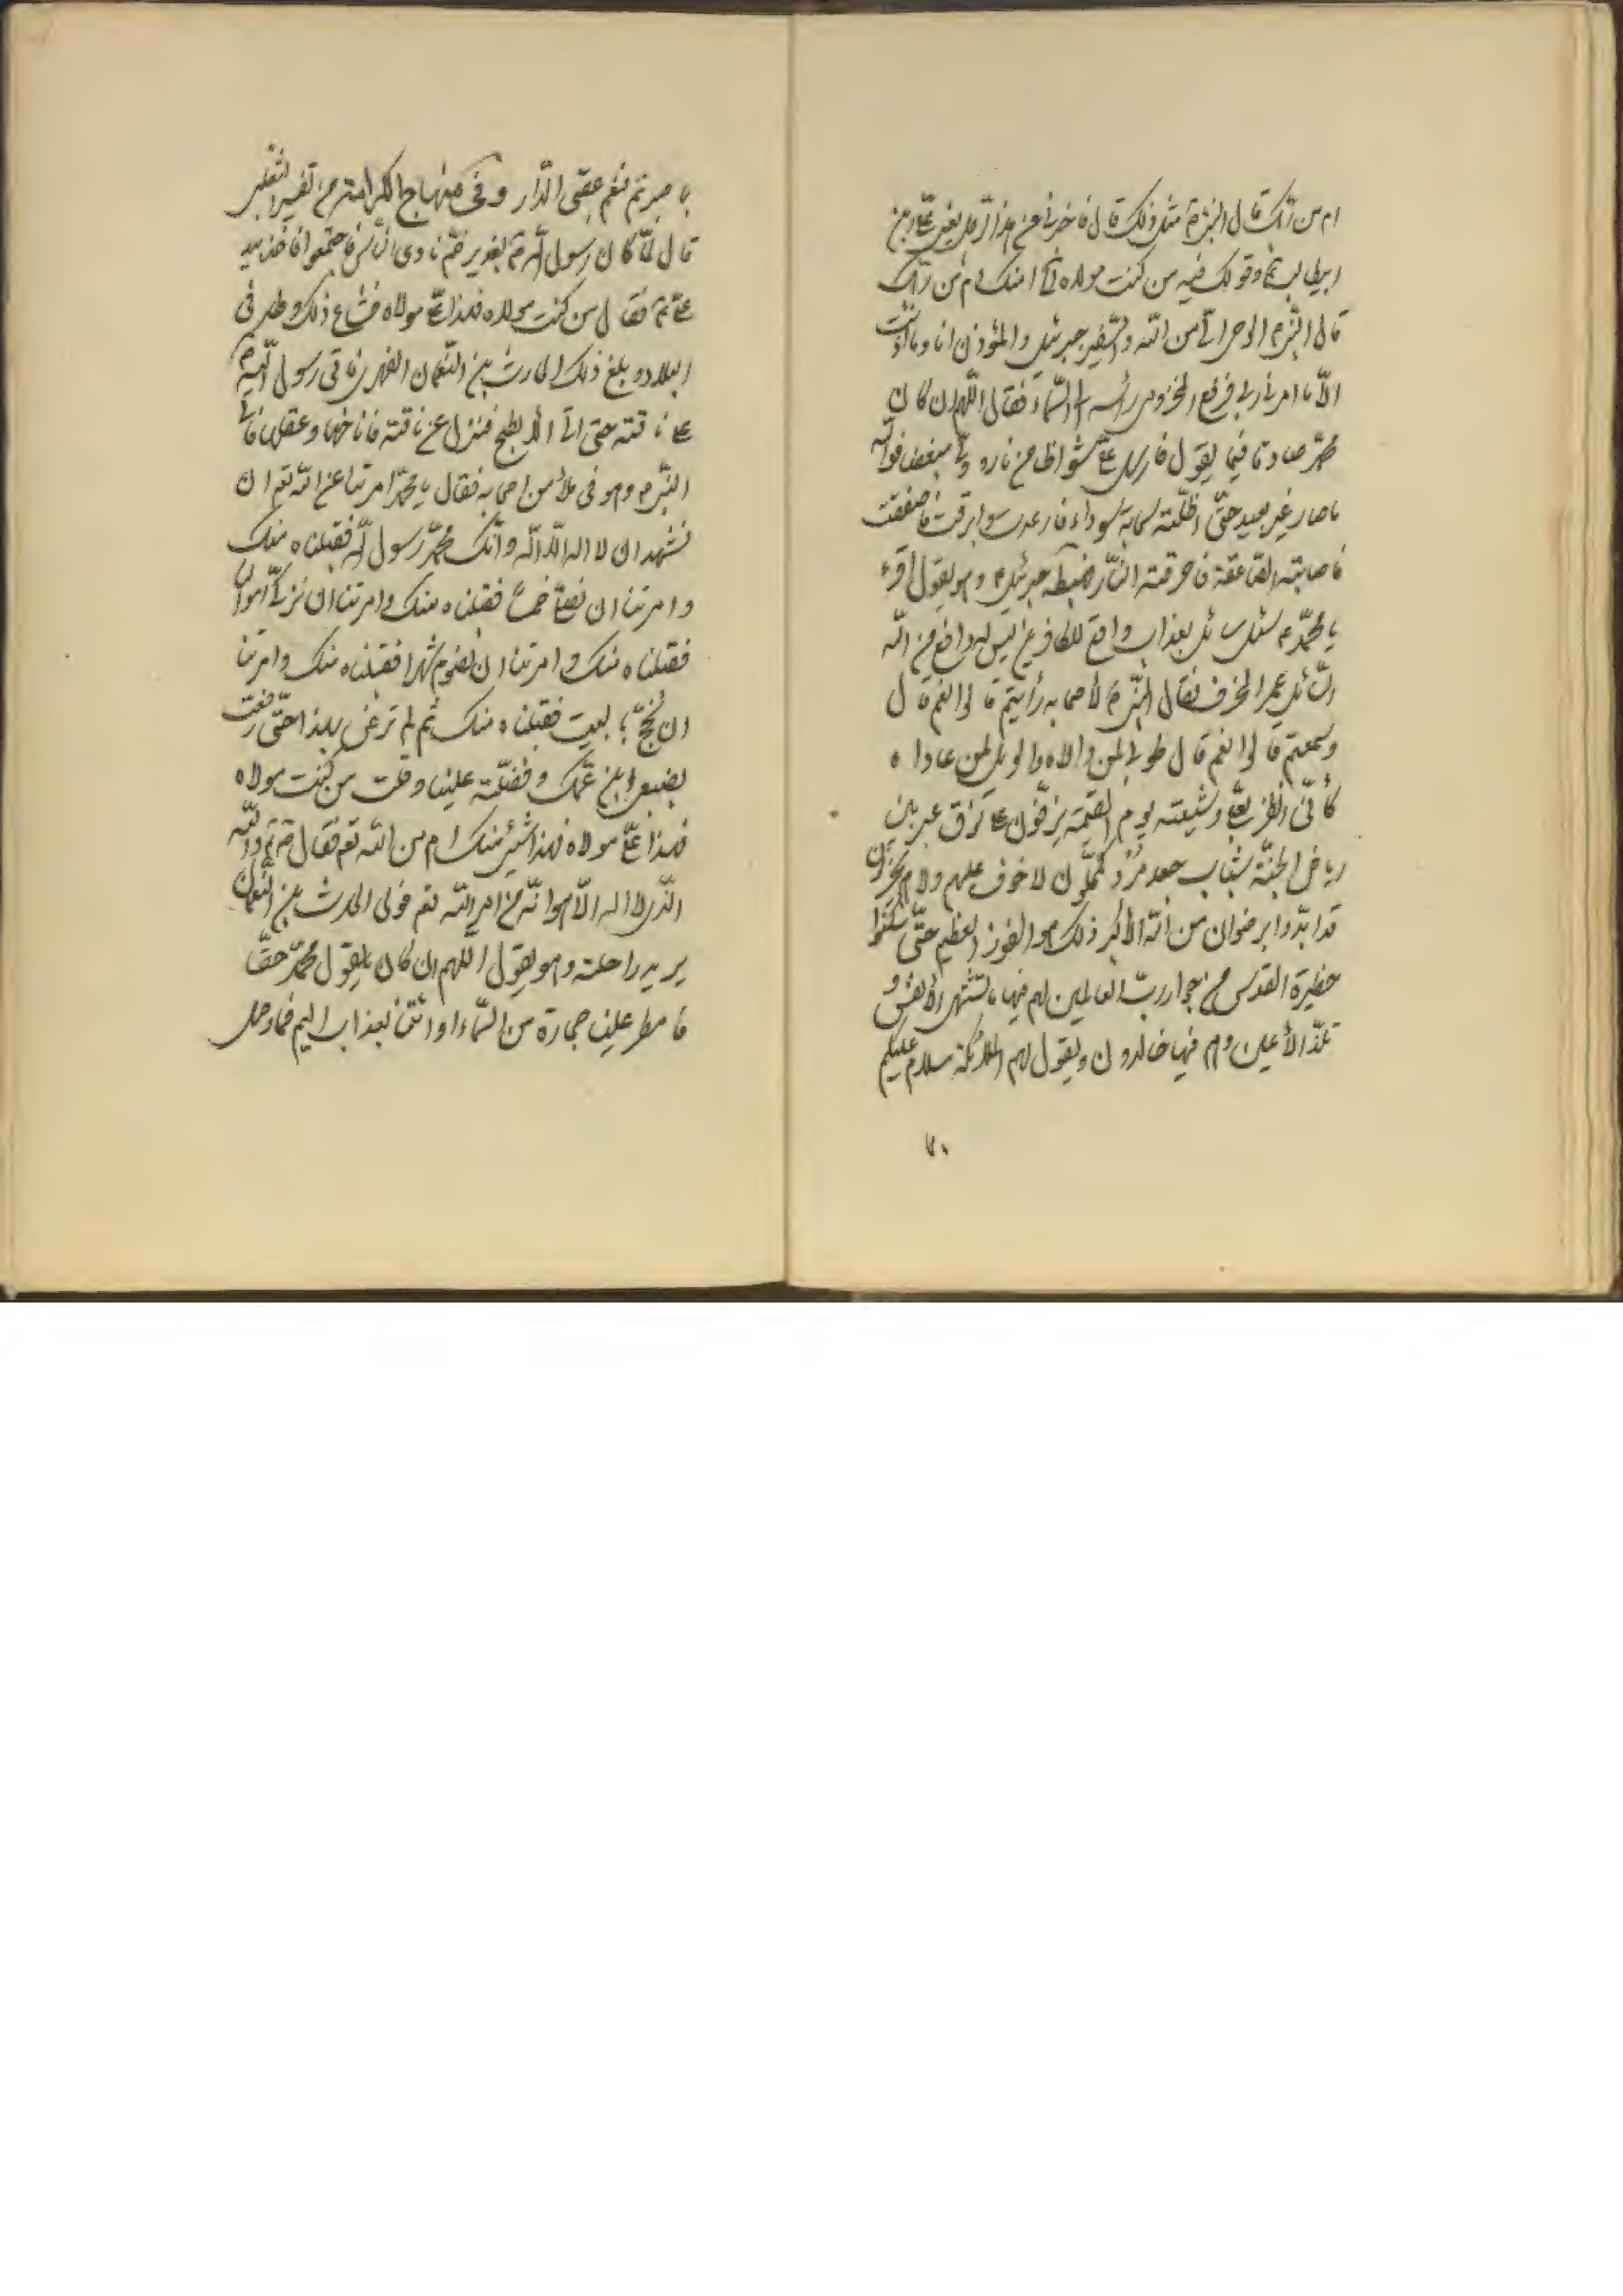 ام من ربّك قال النّبی ص مثل ذلک قال فاخبرنی عن هذا الرّجل یعنی علی بن
ابیطالب ع وقولک فیه من کنت مولاه فعلی امنک ام من ربّک
قال النّبی ص الوحی الیّ من اللّه والسّفیر جبرئیل والمؤذن انا وما اذنت
الّا ما امرنی ربی فرفع المخزومی رأسه الی السّماء فقال اللّهم ان کان
محمّد صادقا فیما یقول فارسل علیّ شواظا من نار و
ما صار غیر بعید حتّی اظلّته سحابة سوداء فارعدت وابرقت فاصعقت
فاصابته الصّاعقة فاحرقته النّار فهبط جبرئیل ع وهو یقول اقرء
یا محمّد ص سئل سائل بعذاب واقع للکافرین لیس له دافع من اللّه
السّائل عمر المخزومی فقال النّبی ص لأصحابه رأیتم قالوا نعم قال
وسمعتم قالوا نعم قال طوبی لمن والاه والویل لمن عاداه
کأنّی انظر الی علی وشیعته یوم القیمة یزفّون علی نوق عبر بین
ریاض الجنّة شباب جعد مُرْد مکحّلون لا خوف علیهم ولا هم یحزنون
قد ایّدوا برضوان من اللّه الأکبر ذلک هو الفوز العظیم حتّی سکنوا
حظیرة القدس من جوار ربّ العالمین لهم فیها ما تشتهی الأنفس و
تلذّ الأعین وهم فیها خالدون ویقول لهم الملائکة سلام علیکم
بما
بما صبرتم فنعم عقبی الدّار وفی منهاج الکرامة من تفسیر الثّعلبی
قال لمّا کان رسول اللّه ص بغدیر خمّ نادی النّاس فاجتمعوا فاخذ بید
علی ع فقال من کنت مولاه فهذا علیّ مولاه فشاع ذلک وطار فی
البلاد و بلغ ذلک الحارث بن النّعمان الفهری فاتی رسول اللّه ص
علی ناقته حتی اتی الأبطح فنزل عن ناقته فاناخها وعقلها فاتی
النّبی ص وهو فی ملأ من اصحابه فقال یا محمّد امرتنا عن اللّه تعم ان
نشهد ان لا اله الّا اللّه وانّک محمّد رسول اللّه فقبلناه منک
وامرتنا ان نصلّی خمساً فقبلناه منک وامرتنا ان نزکّی اموالنا
فقبلناه منک وامرتنا ان نصوم شهرا فقبلناه منک وامرتنا
ان نحجّ البیت فقبلناه منک ثم لم ترض بهذا حتّی رفعت
بضبعی ابن عمّک وفضّلته علینا وقلت من کنت مولاه
فهذا علیّ مولاه فهذا شیء منک ام من اللّه تعم فقال ص واللّه
الّذی لا اله الّا هو انّه من امر اللّه تعم فولی الحرث بن النّعمان
یرید راحلته وهو یقول اللهم ان کان ما یقول محمّد حقّا
فامطر علینا حجارة من السّماء او ائتنا بعذاب الیم فما وصل